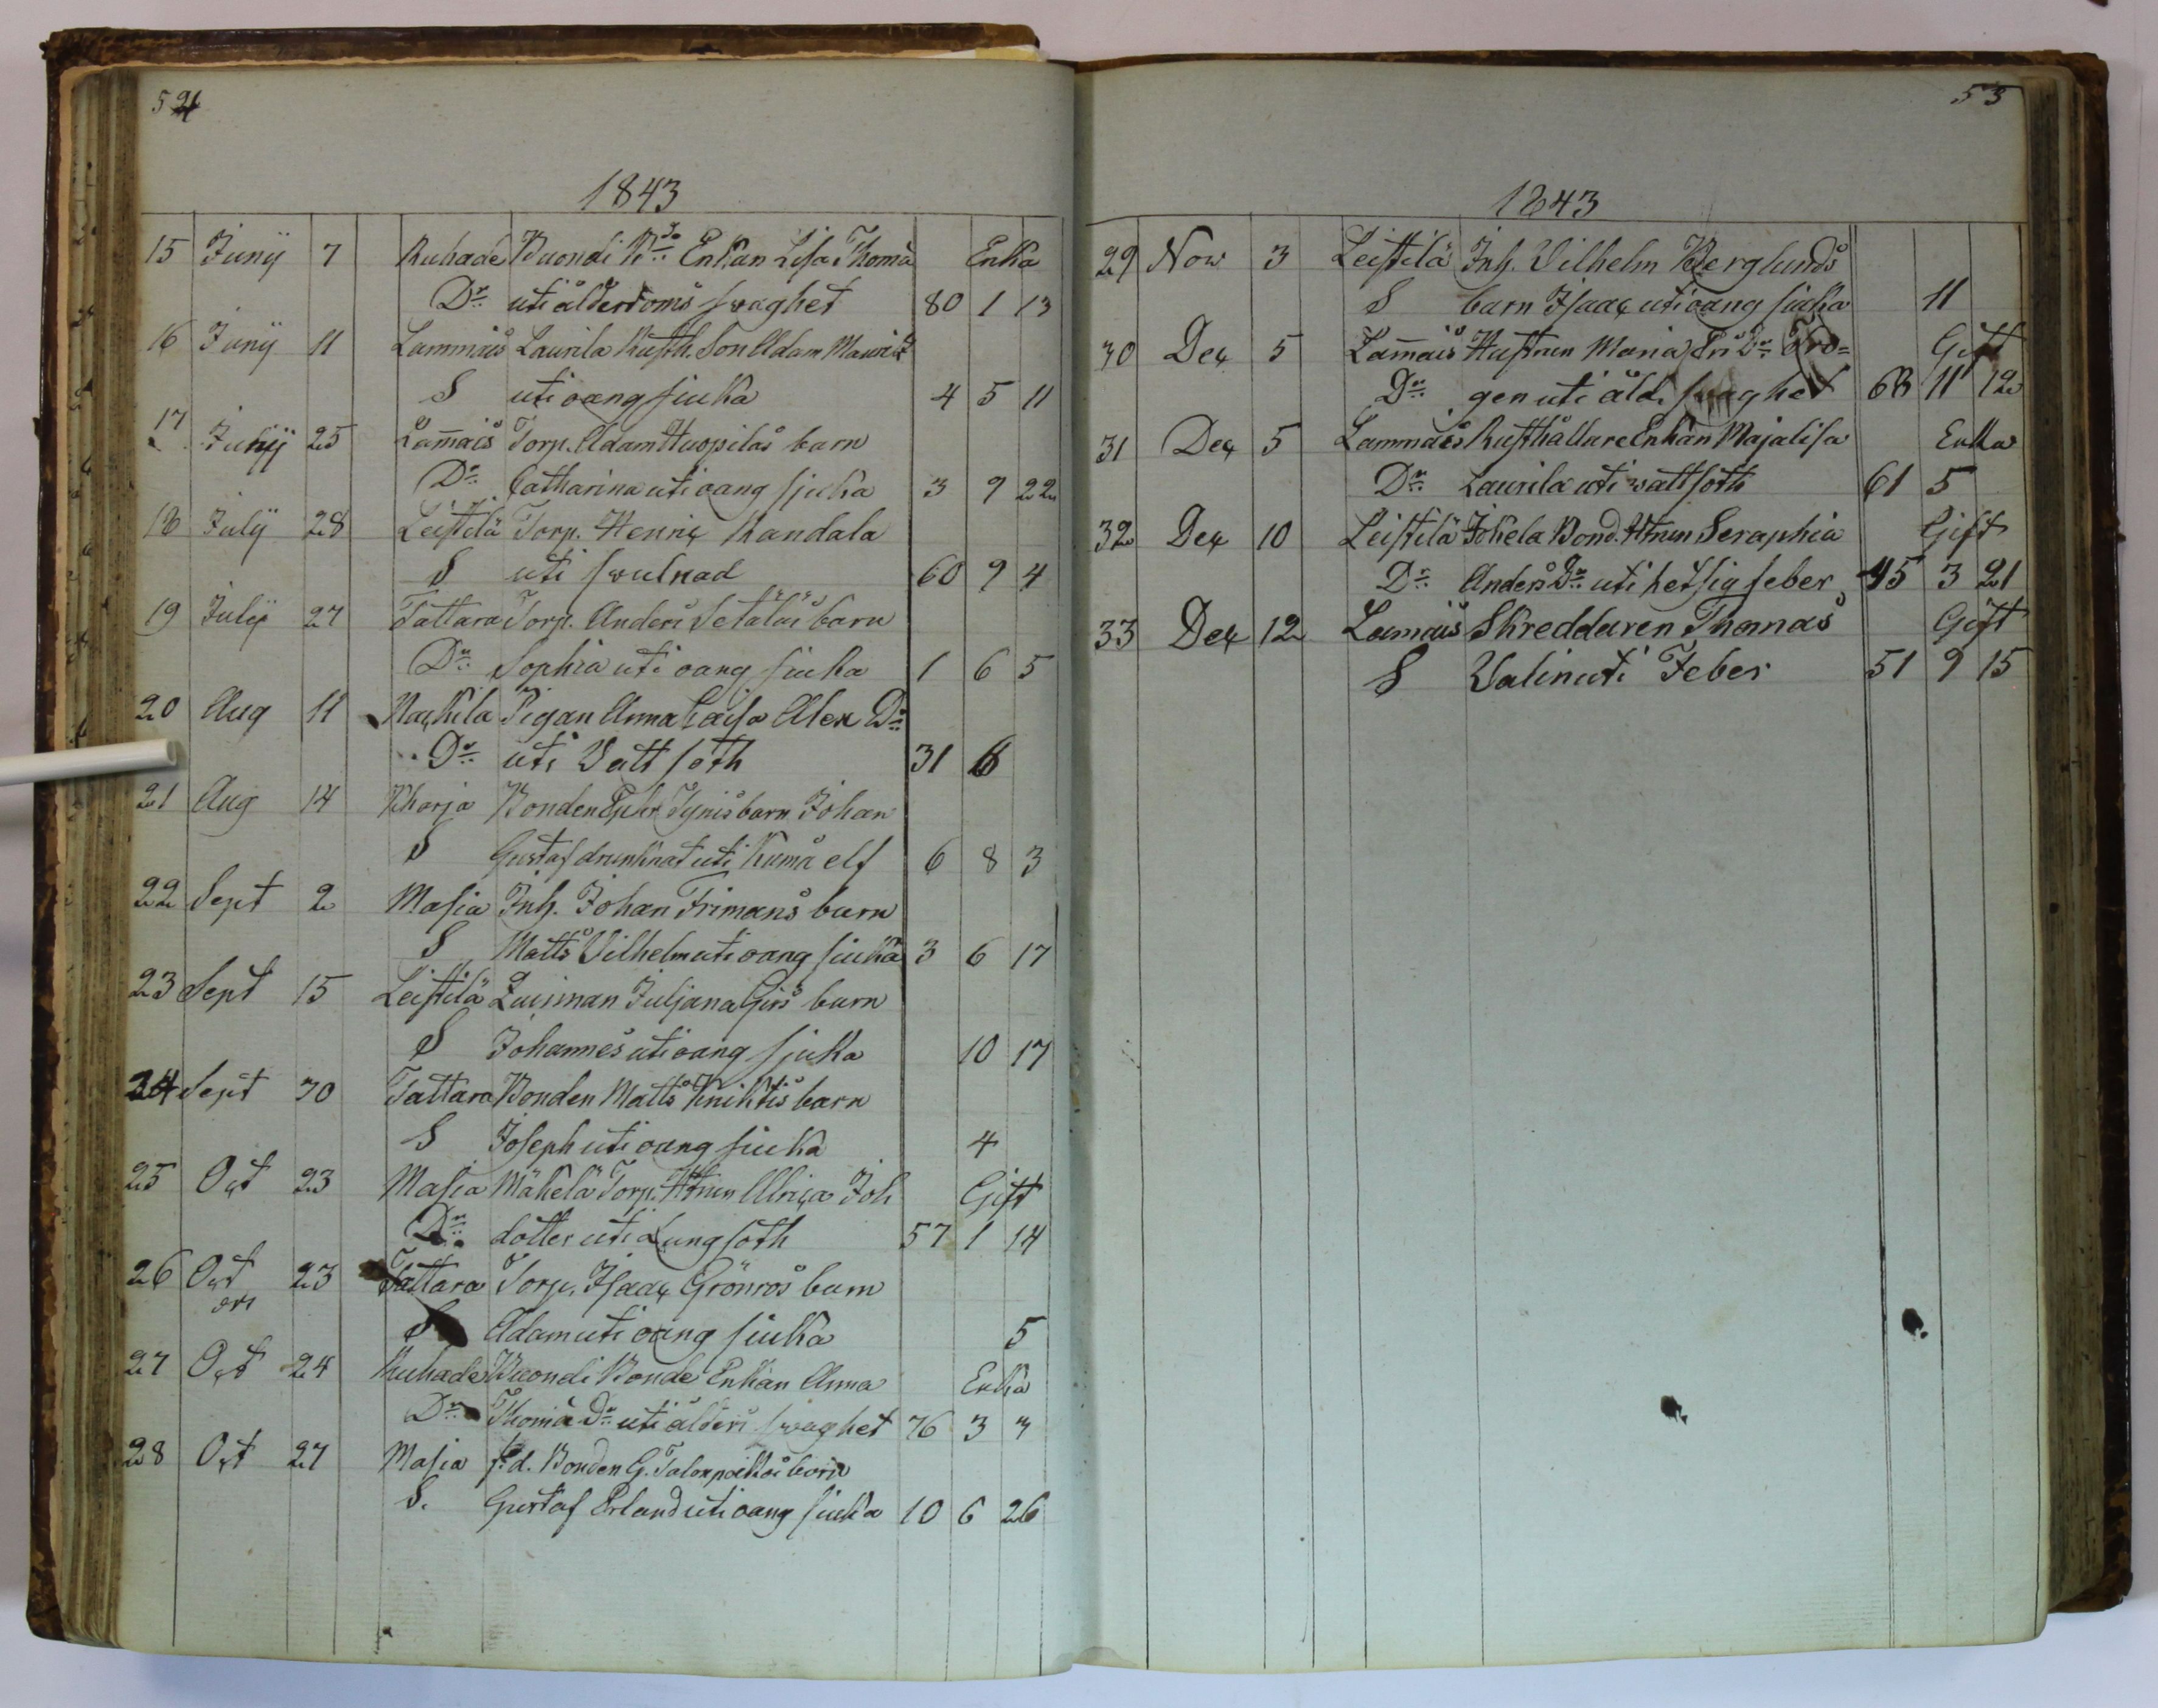 52
1843
15 Junij 7 Ruhade Buondi Bde Enkan Lisa Thomæ Enka
Dr uti ålderdoms swaghet 80 1 13
16 Junij 11 Lammais Laurila Rusth. Son Adam Maurits
S uti oang siuka 4 5 11
17 Junij 25 Lam̄ais Torp. Adam Huopilas barn
Dr Catharina uti oang sjuka 3 9 22
18 Julij 28 Leistilä Torp. Henric Kandala
S uti swulnad 60 9 4
19 Julij 27 Tattara Torp. Anders Setäläs barn
Dr Sophia uti oang siuka 1 6 5
20 Aug 11 Nackila Pigan Anna Caisa Alex Dr
Dr uti Vattsoth 31
21 Aug 14 Kharja Bonden Tynis barn Johan
S Gustaf drunknat uti Kumå elf 6 8 3
22 Sept 2 Masia Inh. Johan Frimans barn
S Matts Vilhelm uti oang siuka 3 6 17
23 Sept 15 Leistilä Quinnan Juljana Girs barn
S Johannes uti oang sjuka 10 17
24 Sept 30 Tattara Bonden Matts Knihtis barn
S Joseph uti oang siuka 4
25 Oct 23 Masia Mäkelä Torp. Htrun Ulrica Joh Gift
Dr dotter uti Lungsoth 57 1 14
26 Oct 23 Tattara Torp. Isaac Grönros barn
S Adam uti oang siuka 5
27 Oct 24 Ruhade Buondi Bonde Enkan Anna Enka
Dr Thomæ Dr uti ålders swaghet 76 3 3
28 Oct 27 Masia f.d. Bonden G. Talonpoikas barn
S. Gustaf Erland uti oang siuka 10 6 26
53
1843
29 Now 3 Leistilä Inh. Vilhelm Berglunds
S barn Isaac uti oang siuka 11
30 Dec 5 Lam̄ais Hustrun Maria Eri Dr Gift
Dr gen uti åld. swaghet 68 11 12
31 Dec 5 Lammais Rusthållare Enkan Majalisa Enka
Dr Laurila uti wattsoth 61 5
32 Dec 10 Leistilä Jokela Bond. Htrun Seraphia Gift
Dr Anders Dr uti hetsig feber 45 3 21
33 Dec 12 Lamais Skreddaren Thomas Gift
S Valin uti Feber 51 9 15